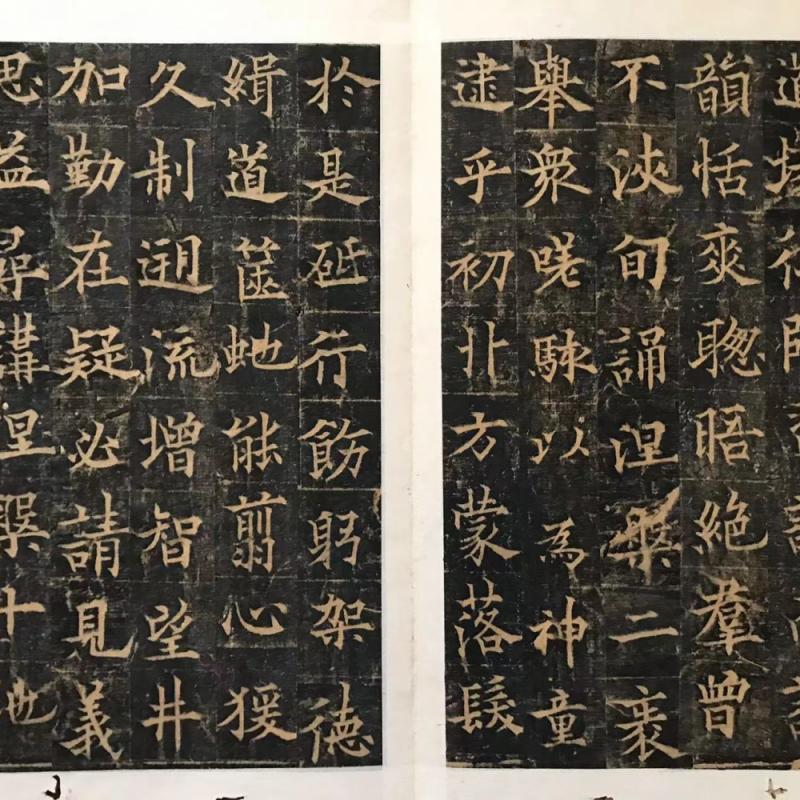 韻恬爽聦晤絕羣曾
不浹旬誦涅槃二袠
舉衆嗟駭以為神童
逮乎初丱方蒙落髮
於是砥行飭躬架德
緝道篋虵能翦心猨
久制遡流增智望井
加勤在疑必請見義
思益尋講涅槃十地